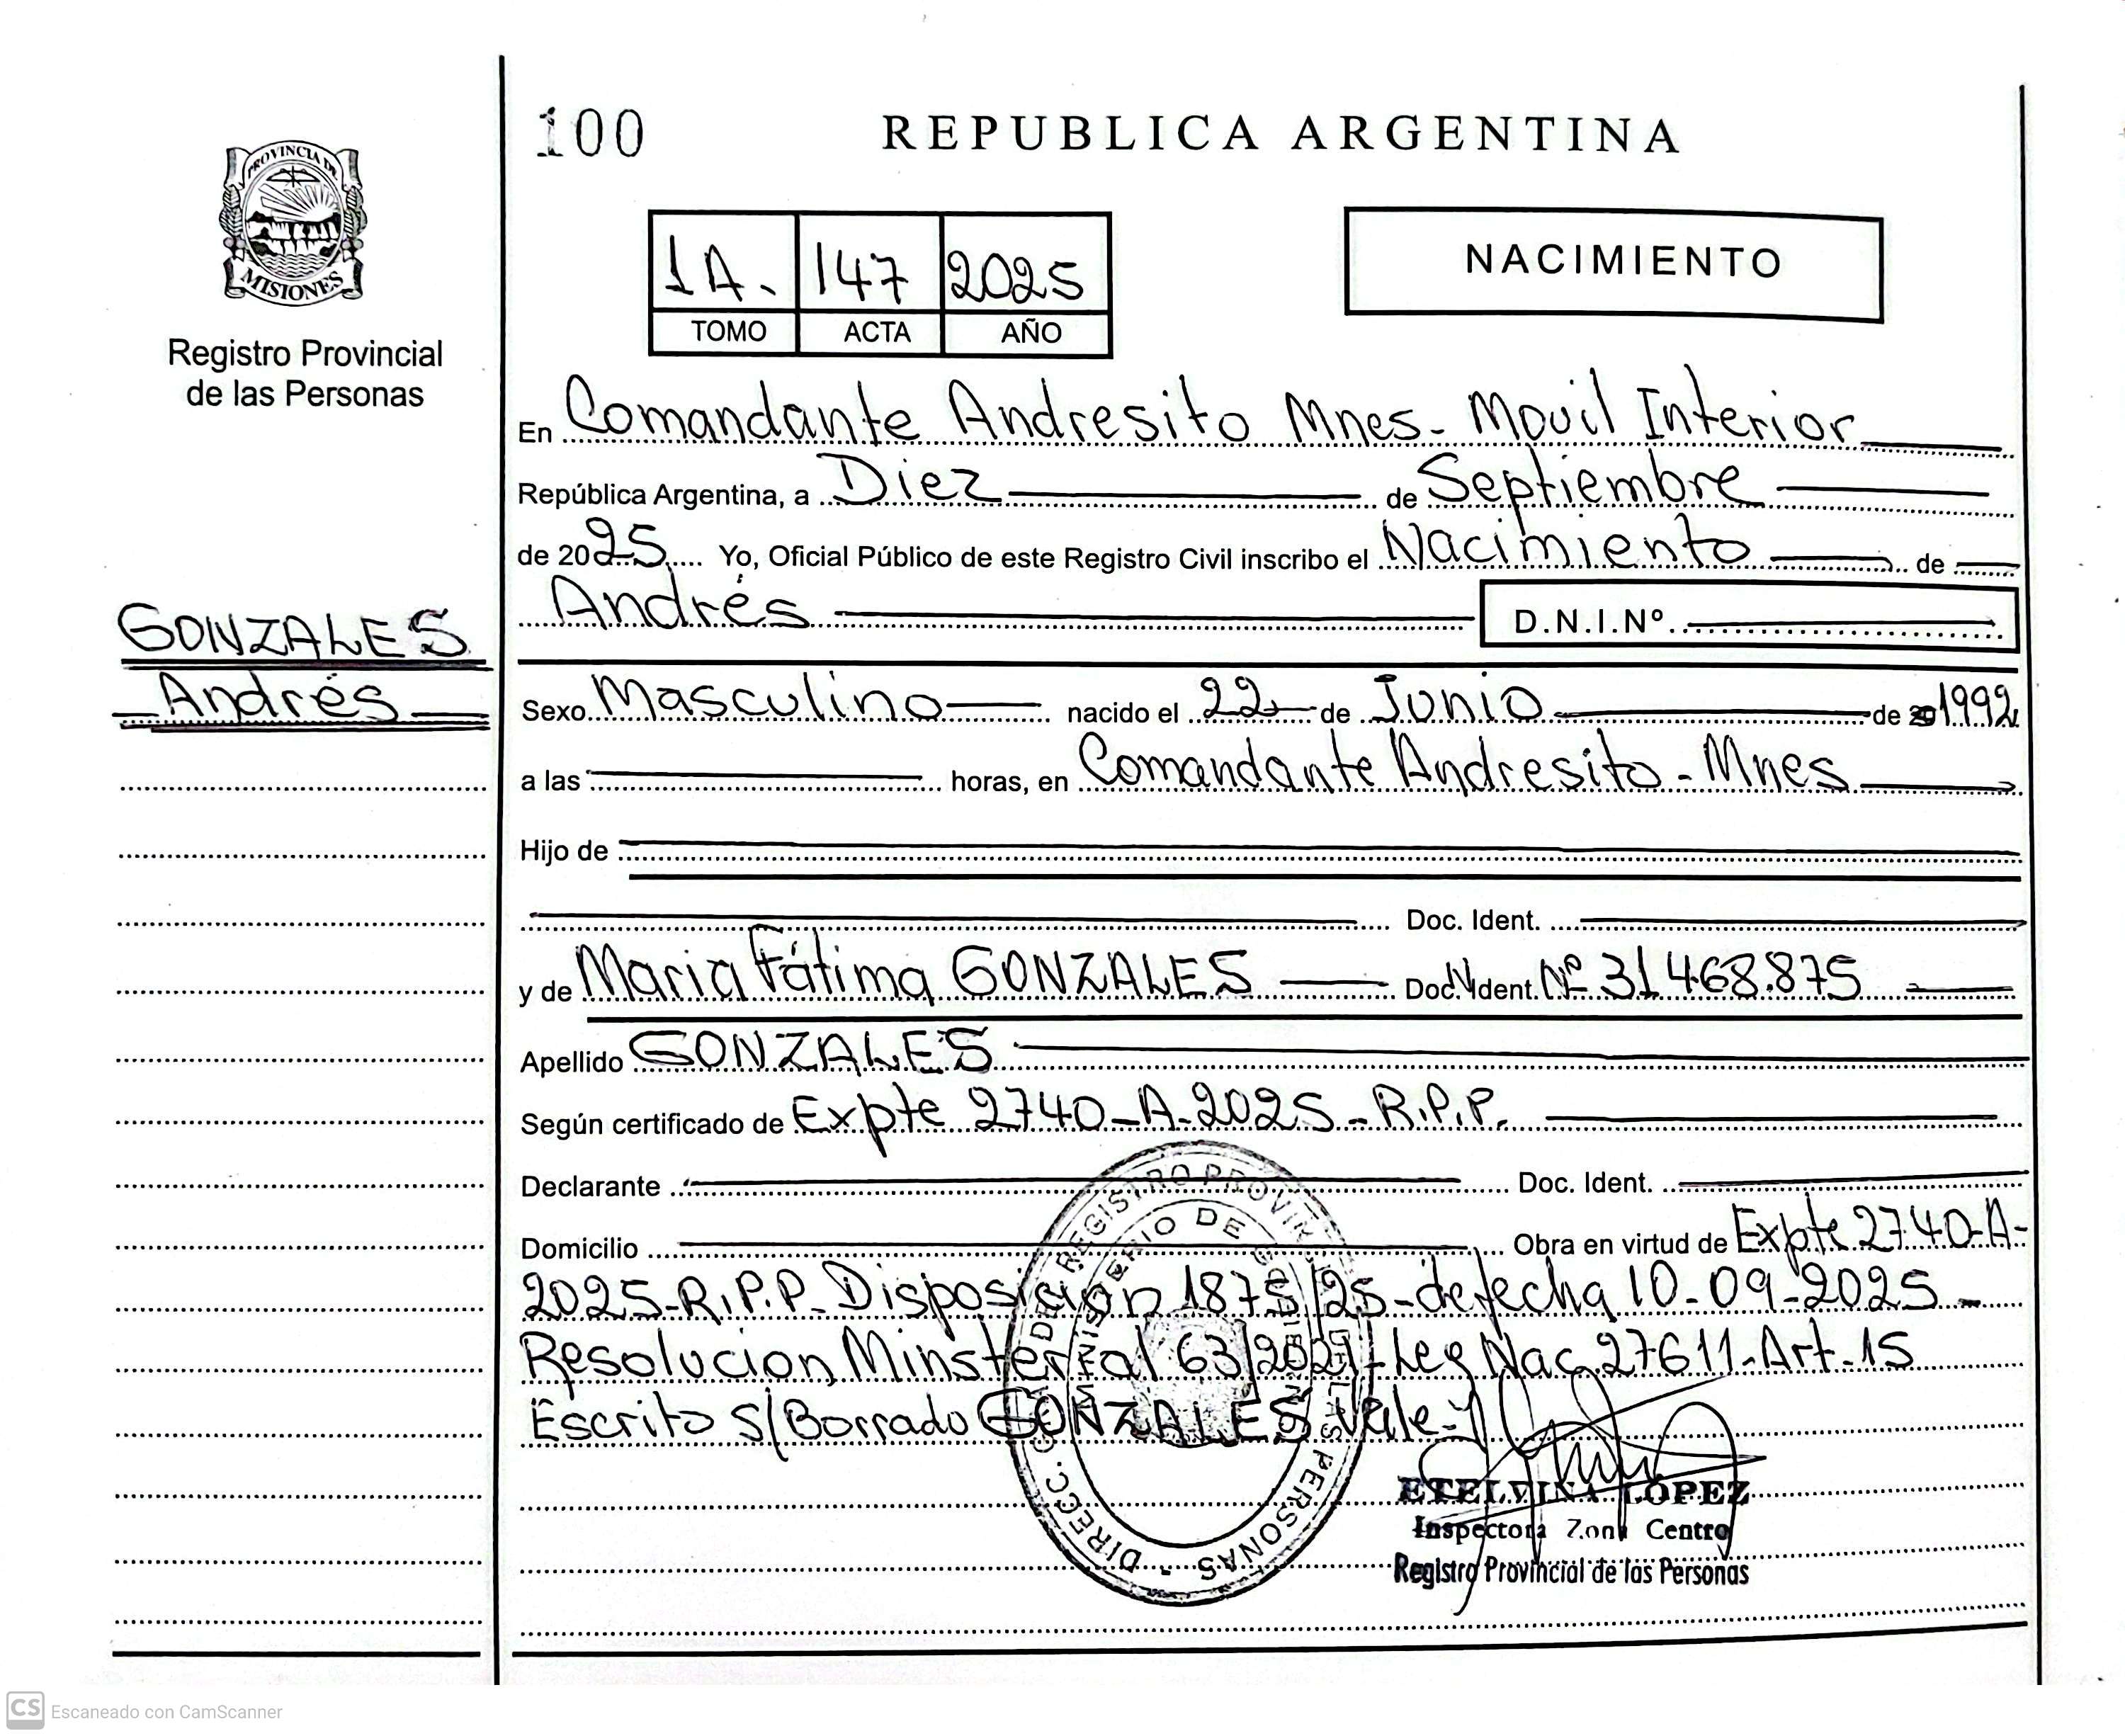 100
REPUBLICA ARGENTINA
PROVINCIA DE
MISIONES
Registro Provincial
de las Personas
1A. 147 2025
TOMO ACTA AÑO
NACIMIENTO
En Comandante Andresito Mnes- Movil Interior
República Argentina, a Diez de Septiembre
de 2025 Yo, Oficial Público de este Registro Civil inscribo el Nacimiento de
Andrés D.N.I.Nº
GONZALES
Andrés
Sexo Masculino nacido el 22 de Junio de 1992
a las horas, en Comandante Andresito - Mnes
Hijo de
Doc. Ident.
y de Maria Fátima GONZALES Doc. Ident. Nº 31.468.875
Apellido GONZALES
Según certificado de Expte 2740-A-2025-R.P.P.
Declarante Doc. Ident.
Domicilio Obra en virtud de Expte 2740-A-
2025-R.P.P- Disposicion 1875/25-de fecha 10-09-2025-
Resolucion Minsterial 63/2021-Ley Nac 27611-Art-15
Escrito s/Borrado GONZALES Vale-
DIRECC. GRAL. DEL REGISTRO PROVINCIAL DE LAS PERSONAS -
MINISTERIO DE GOBIERNO
ETELVINA LOPEZ
Inspectora Zona Centro
Registro Provincial de las Personas
CS Escaneado con CamScanner